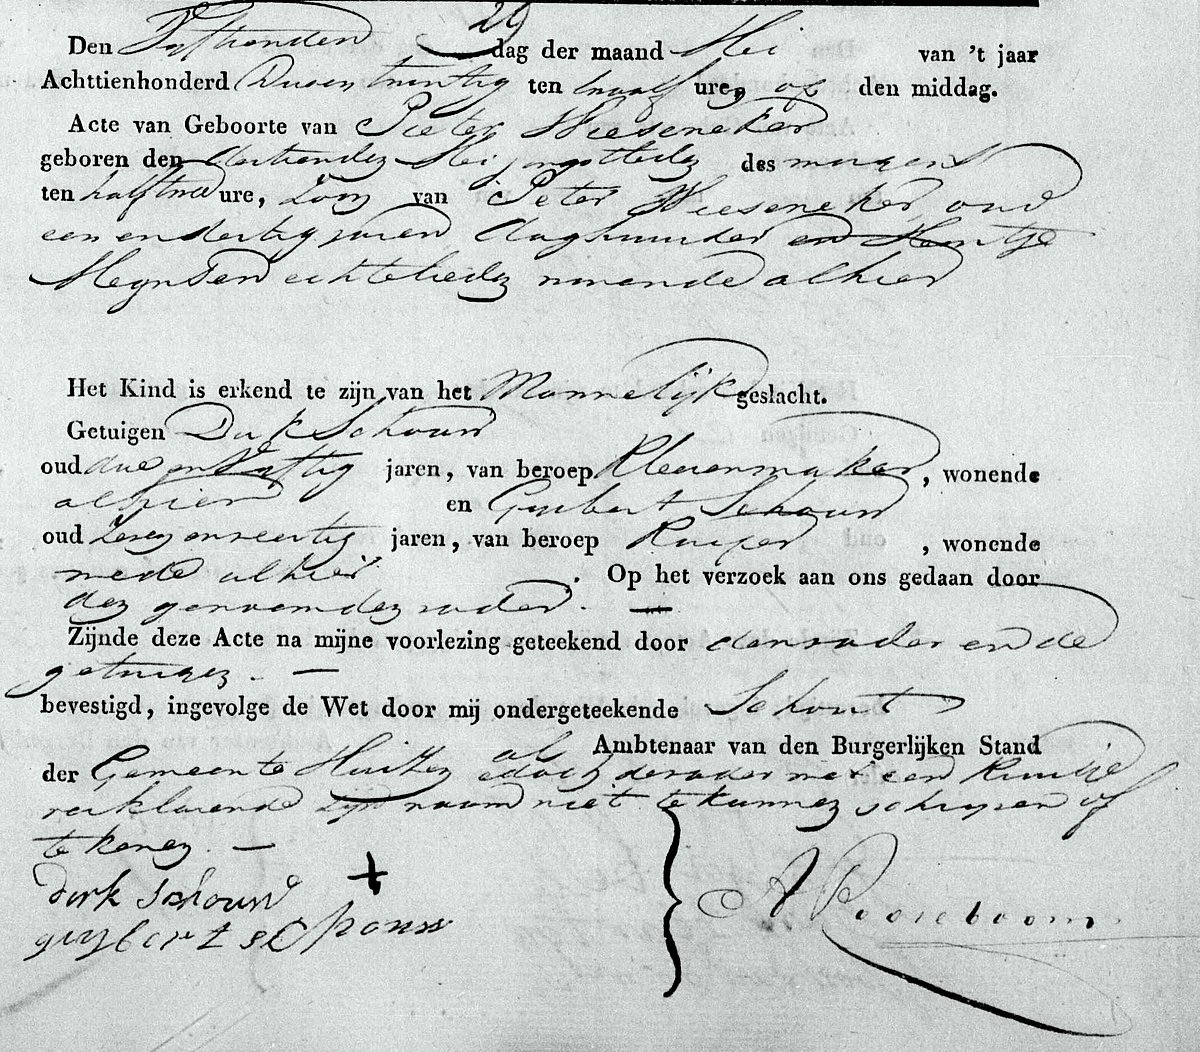 29
Den Vyftienden dag der maand Mei van 't jaar
Achttienhonderd ten twaalf ure, op den middag.
Acte van Geboorte van Pieter Wieseneker
geboren den dertienden Mei jongstleden des morgens
ten half twee ure, zoon van Peter Wieseneker oud
een en dertig jaren daghuurder en Hentje
Meynsen echtelieden wonende alhier
Het Kind is erkend te zijn van het Mannelijk geslacht.
Getuigen Dirk Schouw
oud drie en vyftig jaren, van beroep Kleermaker, wonende
alhier en Guybert Schouw
oud zeven en veertig jaren, van beroep Kuiper, wonende
mede alhier. Op het verzoek aan ons gedaan door
den genoemden vader. —
Zijnde deze Acte na mijne voorlezing geteekend door den vader en de
getuigen. —
bevestigd, ingevolge de Wet door mij ondergeteekende Schout
als Ambtenaar van den Burgerlijken Stand
der Gemeente Huizen edoch de vader met een Kruisje
verklarende zijn naam niet te kunnen schrijven of
tekenen. —
dirk schouw +
guybert schouw
A Rooseboom